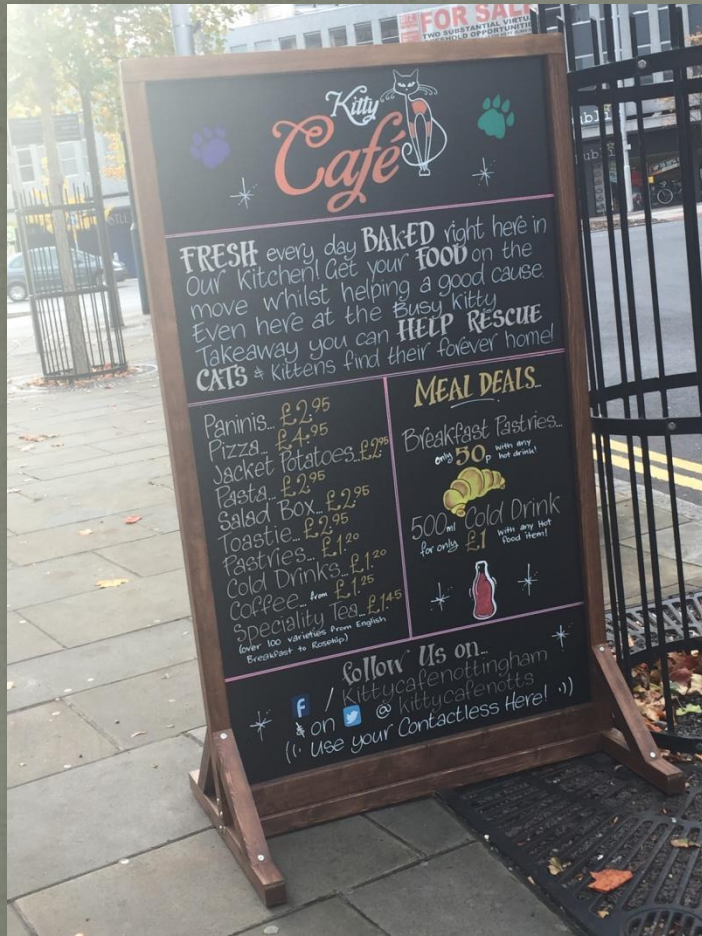 FOR SALE
TWO SUBSTANTIAL VIRTU
HOLD OPPORTUNITIES
Kitty
Café
FRESH every day BAKED right here in
Our Kitchen! Get your FOOD on the
move whilst helping a good cause.
Even here at the Busy Kitty
Takeaway you can HELP RESCUE
CATS & Kittens find their forever home!
Paninis... £2.95
Pizza... £4.95
Jacket Potatoes... £2.95
Pasta... £2.95
Salad Box... £2.95
Toastie... £2.95
Pastries... £1.20
Cold Drinks... £1.20
Coffee... from £1.25
Speciality Tea... £1.45
(over 100 varieties from English
Breakfast to Rosehip)
MEAL DEALS...
Breakfast Pastries...
only 50p with any
hot drink!
500ml Cold Drink
for only £1 with any Hot
food item!
follow us on...
f / Kittycafenottingham
& on @ kittycafenotts
((· Use your Contactless Here! ·))